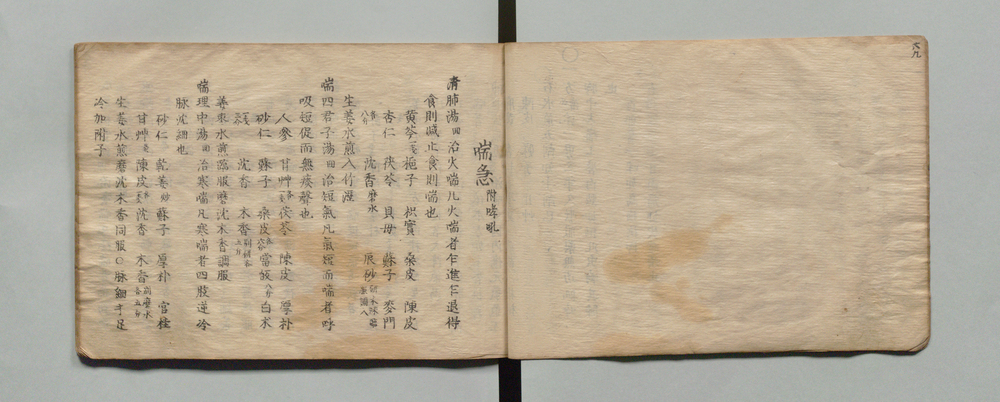 六九
喘急 附哮吼
清肺湯 回 治火喘凡火喘者乍進乍退得
食則減止食則喘也
黄芩 梔子 枳實 桑皮 陳皮
杏仁 茯苓 貝母 蘇子 麥門
沈香 磨水 辰砂
生姜水煎入竹瀝
喘四君子湯 回 治短氣凡氣短而喘者呼
吸短促而無痰聲也
人參 甘艸 茯苓 陳皮 厚朴
砂仁 蘇子 桑皮 當皈 白朮
沈香 木香
姜枣水煎臨服磨沈木香調服
喘理中湯 回 治寒喘凡寒喘者四肢逆冷
脉沈細也
砂仁 乾姜 炒 蘇子 厚朴 官桂
甘艸 陳皮 沈香 木香
生姜水煎磨沈木香同服〇脉細手足
冷加附子